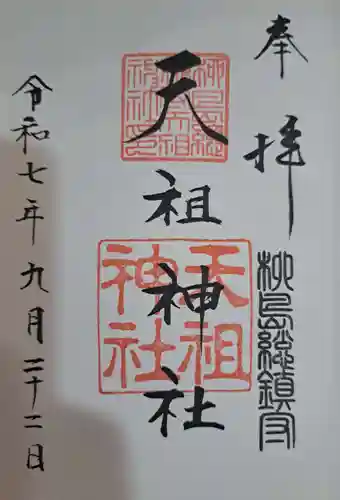 奉拝
柳島總鎮守
天祖神社
天祖
神社
令和七年九月二十二日